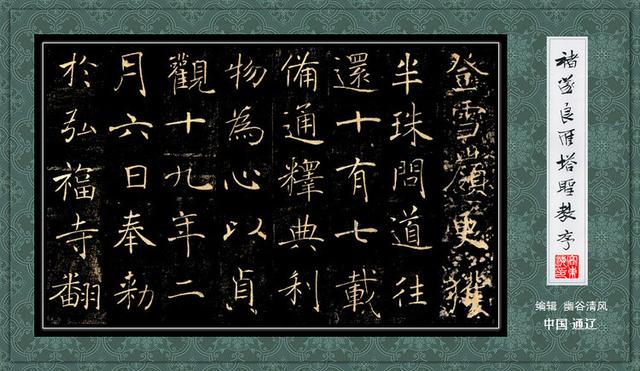 登雪嶺更獲
半珠問道往
還十有七載
備通釋典利
物為心以貞
觀十九年二
月六日奉勅
於弘福寺翻
褚遂良雁塔聖教序
编辑 幽谷清风
中国·通辽